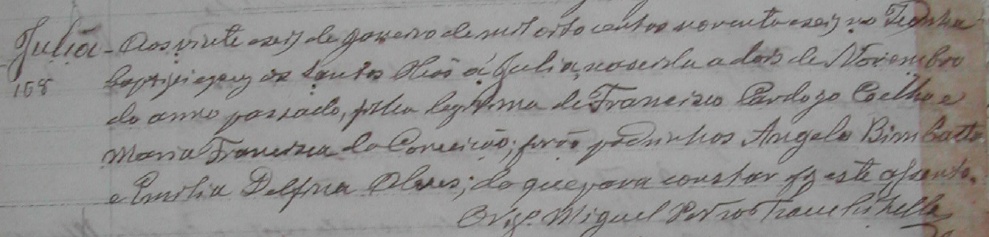 Julia - Aos vinte e seis de janeiro de mil oito centos noventa e seis no
baptizei e puz os Santos Oleos á Julia, nascida a dois de Novembro
do anno passado, filha legitima de Francisco Cardozo Coelho e
Maria Francisca da Conceição; forão padrinhos Angelo
e Emilia Delfina Alves; do que para constar fiz este assento.
Miguel